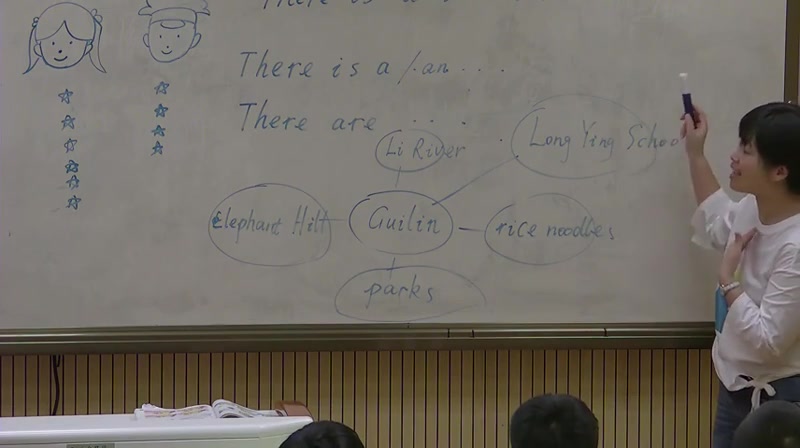 There is a
There is a / an ...
There are ...
Li River
Long Ying Schoo
Elephant Hill
Guilin
rice noodles
parks